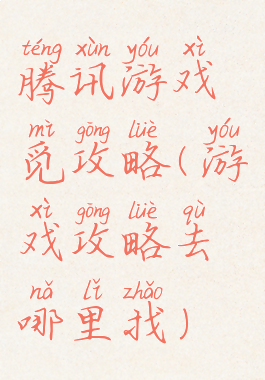 téng xùn yóu xì
腾讯游戏
mì gōng lüè yóu
觅攻略(游
xì gōng lüè qù
戏攻略去
nǎ lǐ zhǎo
哪里找)